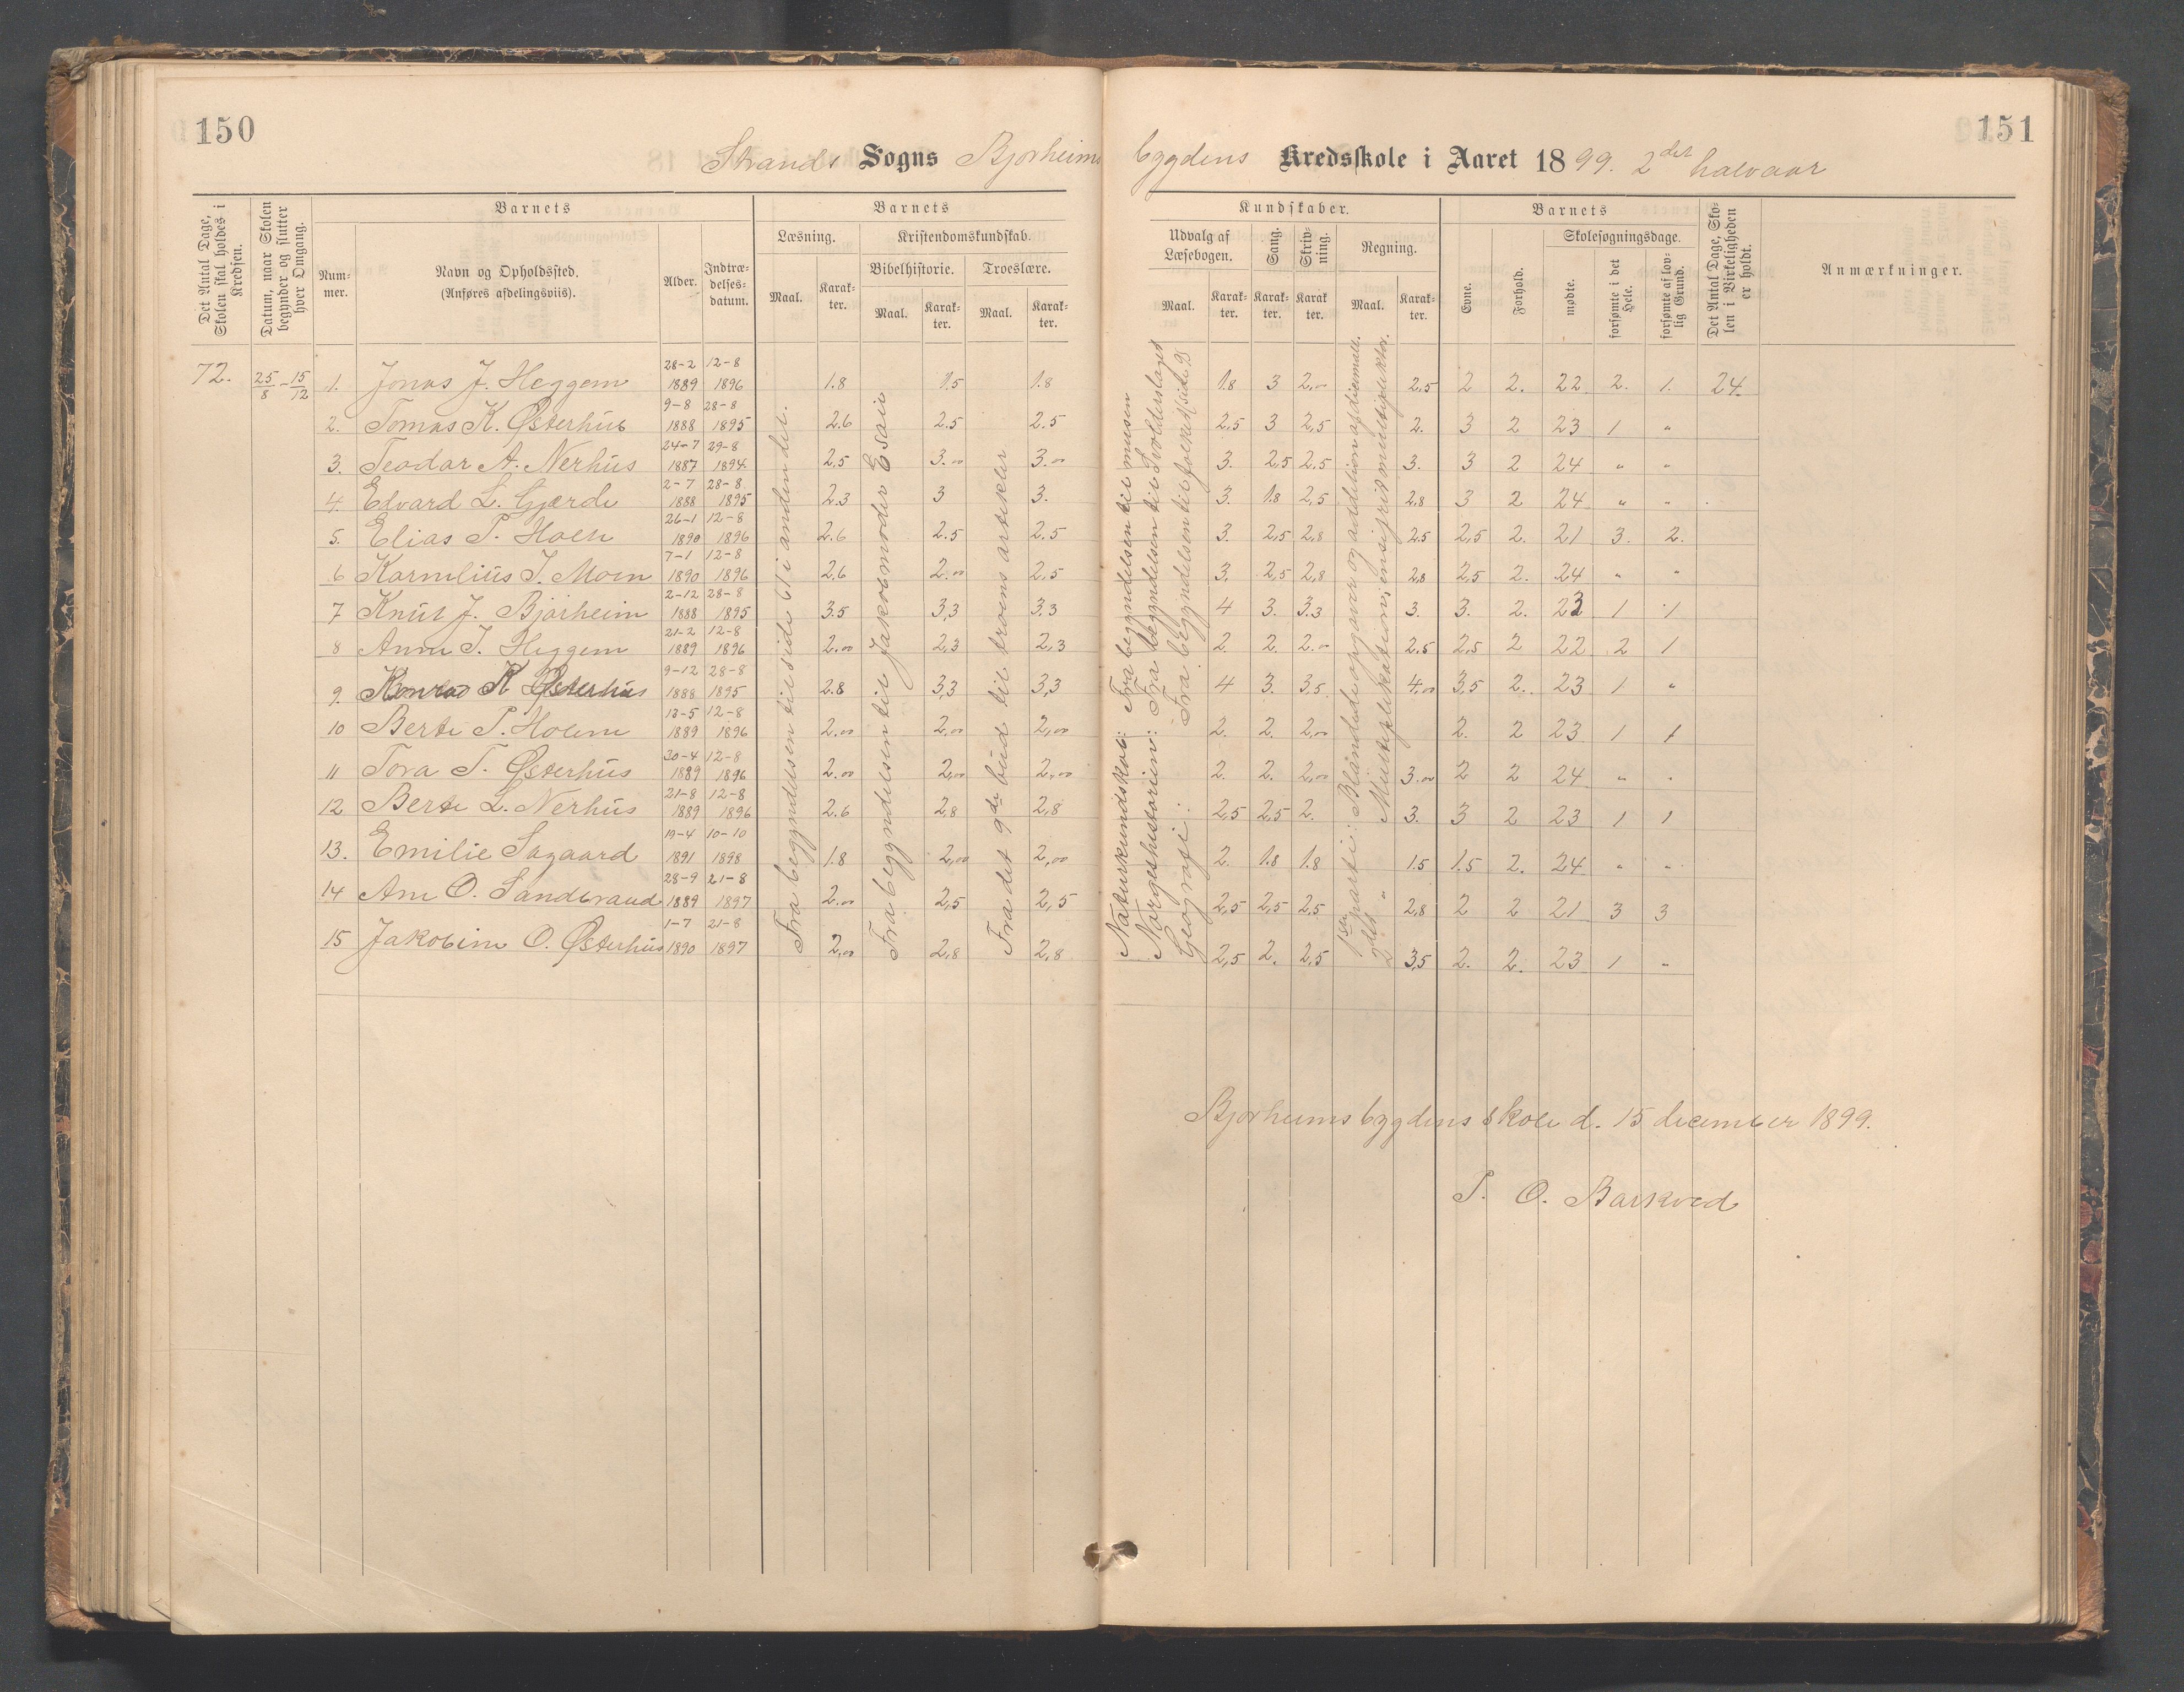 150
151
Strands Sogns Bjorheims bygdens Kredsskole i Aaret 1899. 2det halvaar
Det Antal Dage, Skolen skal holdes i Kredsen.
Datum, naar Skolen begynder og slutter hver Omgang.
Barnets
Num-mer.
Navn og Opholdssted. (Anføres afdelingsviis).
Alder.
Indtræ-delses-datum.
Barnets
Læsning.
Maal.
Karak-ter.
Kristendomskundskab.
Bibelhistorie.
Maal.
Karak-ter.
Troeslære.
Maal.
Karak-ter.
Kundskaber.
Udvalg af Læsebogen.
Maal.
Karak-ter.
Sang.
Karak-ter.
Skriv-ning.
Karak ter.
Regning.
Maal.
Karak-ter.
Barnets
Evne.
Forhold.
Skolesøgningsdage.
mødte.
forsømte i det Hele.
forsømte af lov-lig Grund.
Det Antal Dage, Sko-len i Virkeligheden er holdt.
Anmærkninger.
72. 25/8 - 15/12
1. Jonas J. Heggem 28-2 1889 12-8 1896 1.8 1.5 1.8 1.8 3 2,00 2.5 2 2. 22 2. 1. 24.
2. Tomas K. Østerhus 9-8 1888 28-8 1895 2.6 2.5 2.5 2,5 3 2,5 2. 3 2 23 1 "
3. Teodor A. Nerhus 24-7 1887 29-8 1894 2.5 3.00 3.00 3. 2,5 2.5 3. 3 2 24 " "
4. Edvard L. Gjærde 2-7 1888 28-8 1895 2.3 3 3. 3. 1.8 2,5 2,8 3 2 24 " "
5. Elias P. Holen 26-1 1890 12-8 1896 2.6 2.5 2.5 3. 2,5 2,8 2.5 2,5 2. 21 3. 2.
6 Kornelius T. Moen 7-1 1890 12-8 1896 2.6 2.00 2,5 3. 2,5 2,8 2,8 2,5 2. 24 " "
7 Knut J. Bjørheim 2-12 1888 28-8 1895 3.5 3,3 3.3 4 3. 3.3 3. 3. 2. 23 1 1
8 Anna T. Heggem 21-2 1889 12-8 1896 2.00 2,3 2,3 2. 2. 2.00 2.5 2,5 2 22 2 1
9. Konrad K Østerhus 9-12 1888 28-8 1895 2.8 3,3 3,3 4 3. 3,5 4.00 3,5 2. 23 1. "
10 Berte P. Holen 13-5 1889 12-8 1896 2.00 2,00 2,00 2. 2. 2,00 2. 2 23 1 1
11 Tora T. Østerhus 30-4 1889 12-8 1896 2.00 2,00 2,00 2. 2. 2,00 3.00 2 2 24 " "
12 Berte L. Nerhus 21-8 1889 12-8 1896 2.6 2,8 2,8 2,5 2,5 2. 3. 3 2 23 1 1
13. Emilie Sagaard 19-4 1891 10-10 1898 1.8 2,00 2,00 2. 1.8 1.8 1.5 1.5 2. 24 " "
14 Ane O. Sandbrand 28-9 1889 21-8 1897 2.00 2,5 2,5 2,5 2,5 2,5 2,8 2 2 21 3 3
15 Jakobine O. Østerhus 1-7 1890 21-8 1897 2,00 2,8 2,8 2,5 2. 2,5 3,5 2. 2. 23 1 "
Fra begyndelsen til side 61 i anden del.
Fra begyndelsen til Jakobmoder Esaii
Fra det 9de bud til troens artikler
Naturkundskab: Fra begyndelsen til musen
Norgeshistorien: Fra begyndelsen til Svolderslaget
Geografi: Fra begyndelsen til folket (side 95)
1ste parti: Blandede opgaver og addition af diemalt.
2det " Multiplikation, ensifret multiplikator.
Bjorheimsbygdens skole d. 15 december 1899.
P. O. Barkved